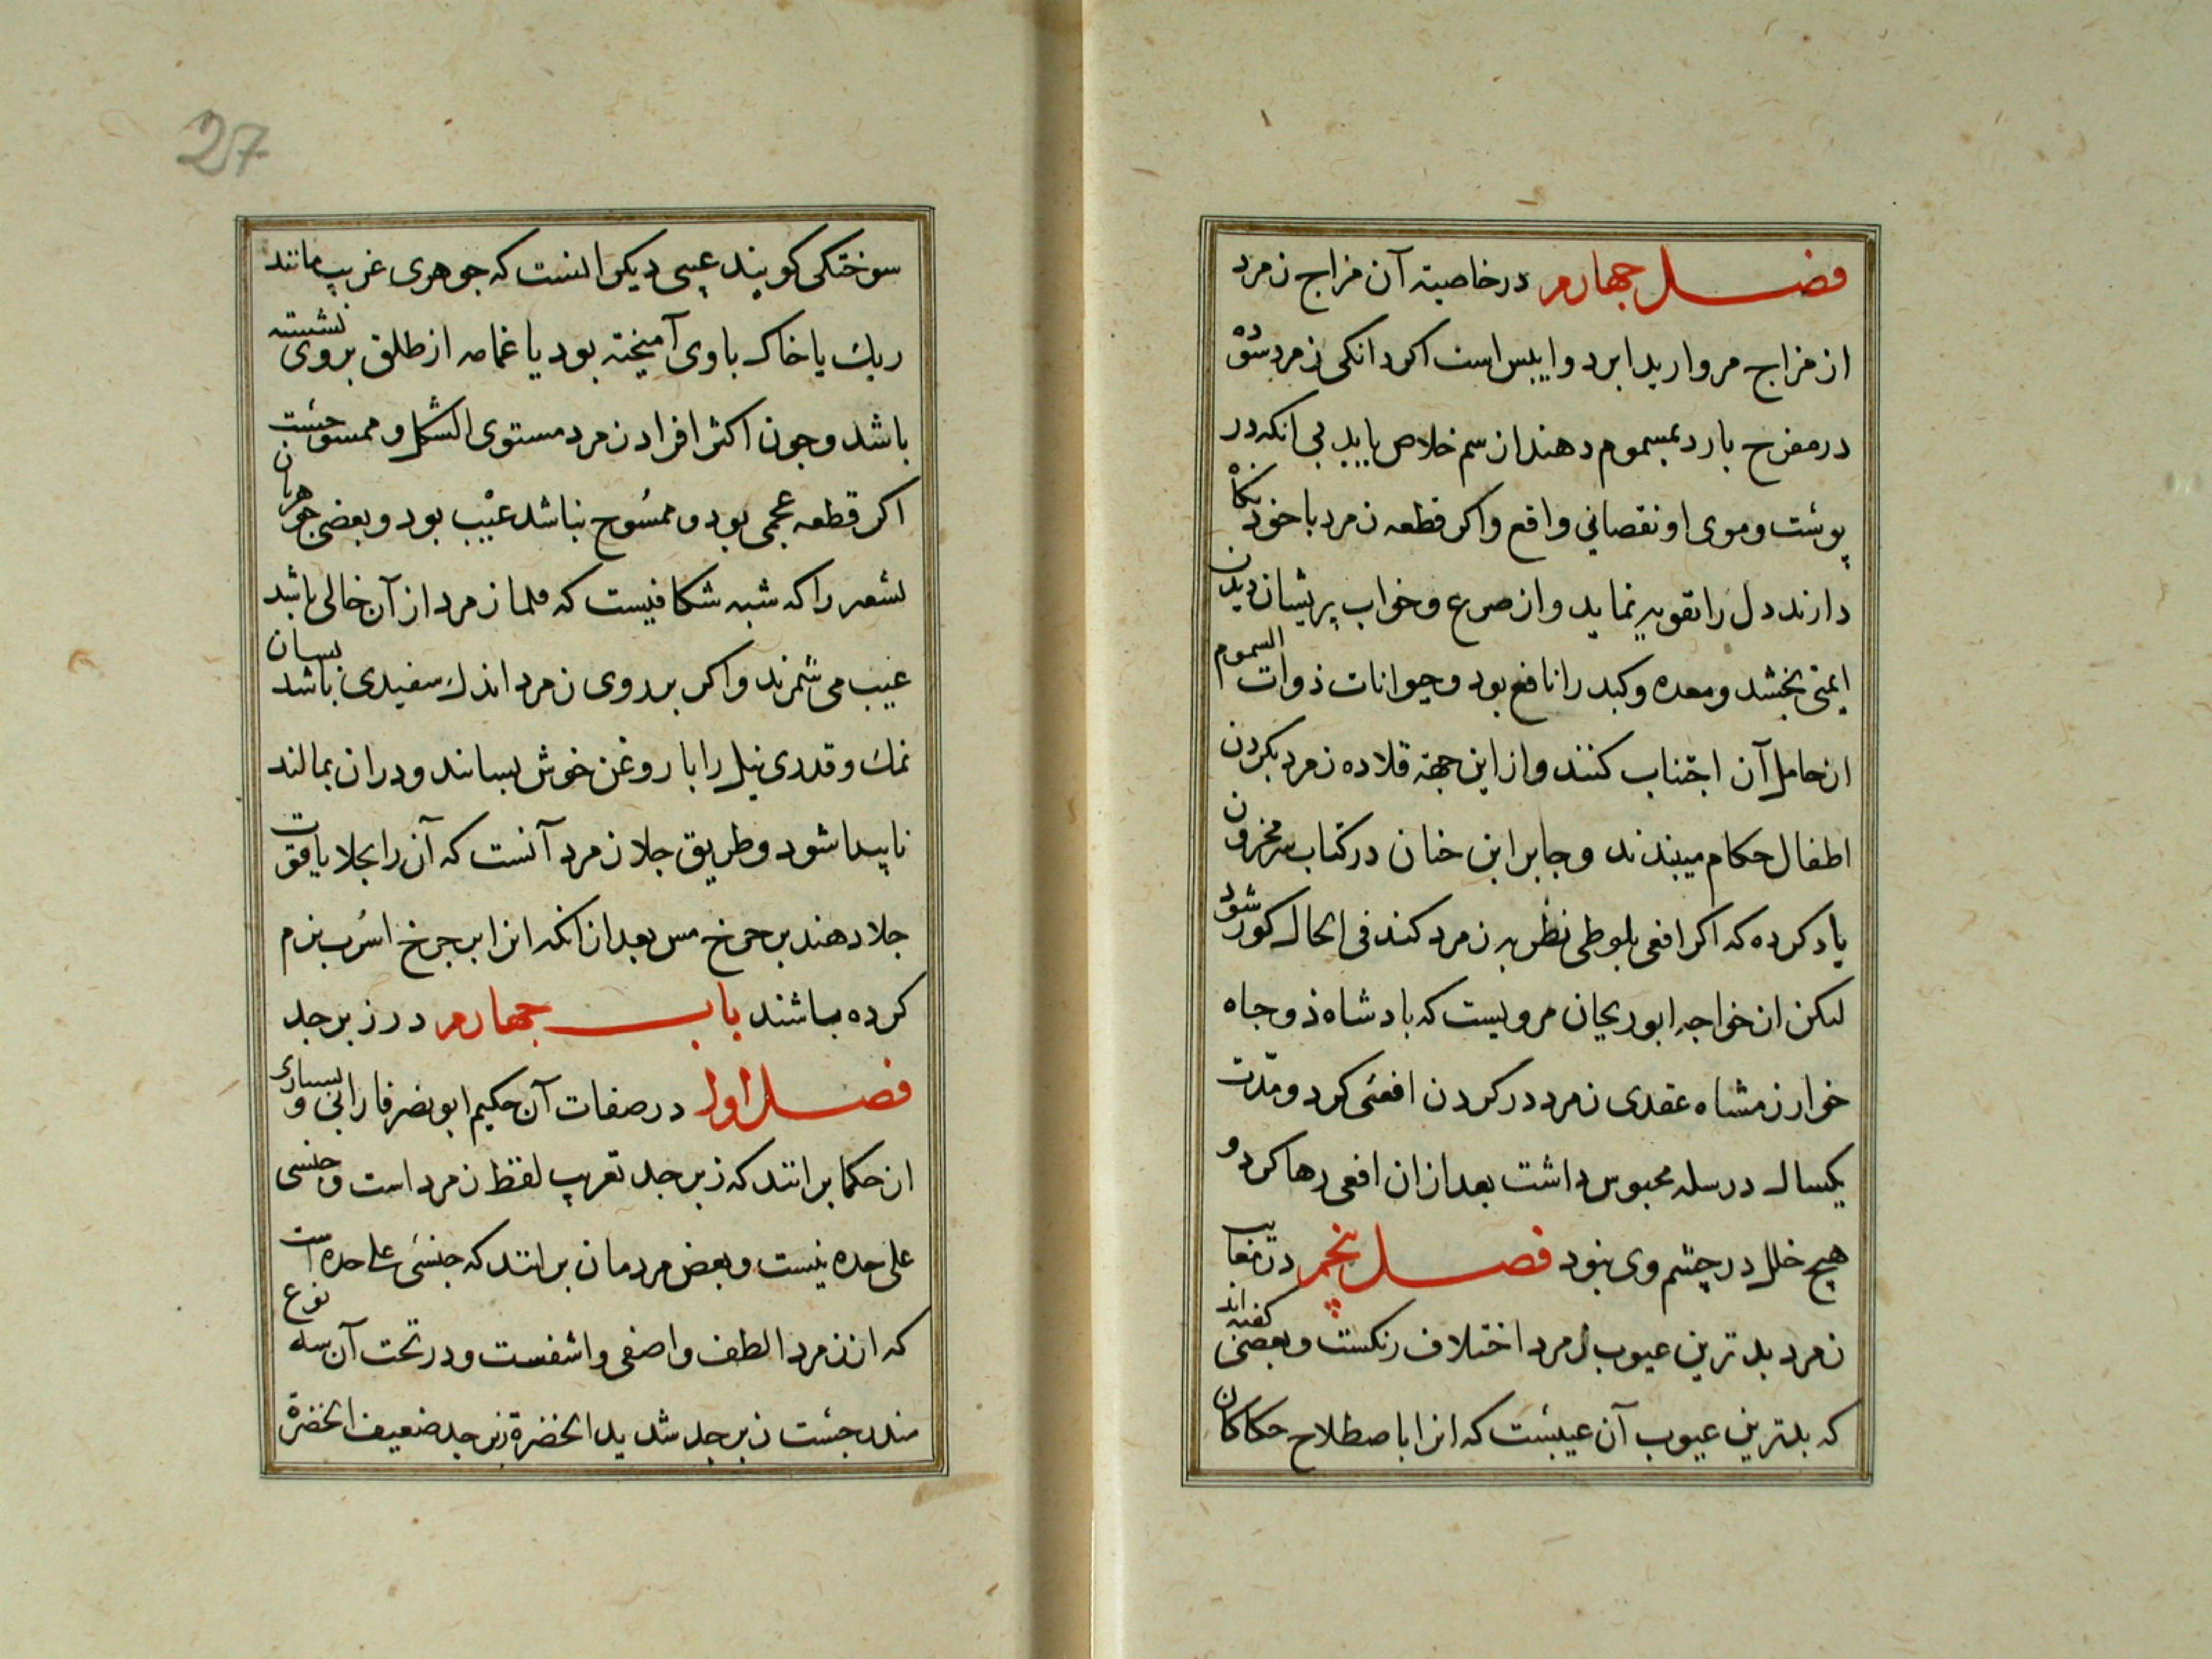 فصل چهارم در خاصیته آن مزاج زمرد
از مزاج مروارید ابرد و ایبس است اکر دانکی زمرد سوده
در مفرح بارد بمسموم دهند از سم خلاص یابد بی انکه در
پوست و موی او نقصانی واقع و اکر قطعه زمرد با خود نکاه
دارند دل را تقویه نماید و از صرع و خواب پریشان دیدن
ایمنی بخشد و معده و کبد را نافع بود و حیوانات ذوات السموم
از حامل آن اجتناب کنند و از این جهته قلاده زمرد بکردن
اطفال حکام میبندند و جابر ابن حنان در کتاب سر مخزون
یاد کرده که اکر افعی بلوطی نظر به زمرد کند فی الحال کور شود
لیکن از خواجه ابوریحان مرویست که بادشاه ذوجاه
خوارزمشاه عقدی زمرد در کردن افعئی کرد و مدّت
یکسال در سله محبوس داشت بعد از ان افعی رها کرد و
هیچ خلل در چشم وی نبود فصل پنجم در معایب
زمرد بدترین عیوب زمرد اختلاف رنکست و بعضی کفته اند
که بدترین عیوب آن عیبست که انرا باصطلاح حکاکان
27
سوختکی کویند عیبی دیکر انست که جوهری غریب مانند
ریك یا خاک با وی آمیخته بود یا غمامه از طلق بر وی نشسته
باشد و جون اکثر افراد زمرد مستوی الشکل و ممسوحست
اکر قطعه عجمی بود و ممسُوح نباشد عیْب بود و بعضی جوهریان
شعر را که شبه شکافیست که قلما زمرد از آن خالی باشد
عیب می شمرند و اکر بر روی زمرد اندك سفیدی باشد بسان
نمك و قدری نیل را با روغن خوش بسایند و در ان بمالند
ناپیدا شود و طریق جلا زمرد آنست که آن را بجلا یاقوت
جلا دهند بر جرخ مس بعد از انکه انرا بر جرخ اسرب نرم
کرده باشند باب جهارم در زبرجد
فصل اول در صفات آن حکیم ابو نصر فارابی و بسیاری
از حکما برانند که زبرجد تعریب لفظ زمرد است و جنسی
علی حده نیست و بعض مردمان برانند که جنسی علی حده است
که از زمرد الطف و اصفی و اشفست و در تحت آن سه نوع
مندرجست زبرجد شدید الخضرة زبرجد ضعیف الخضرة